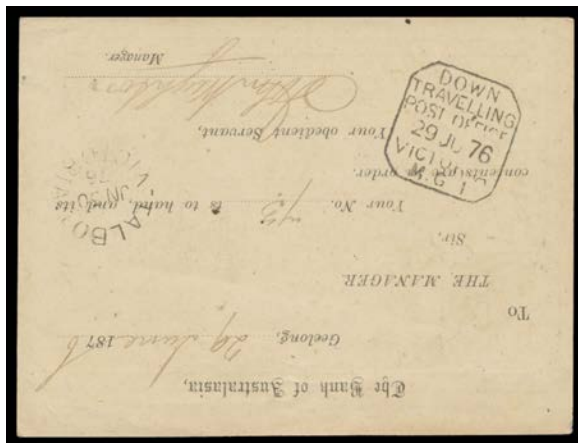 The Bank of Australasia,
Geelong, 29 June 1876
To
THE MANAGER
Sir,
Your No. 73 is to hand, and its
contents are in order.
Your obedient Servant,
Manager.
DOWN
TRAVELLING
POST OFFICE
29 JU 76
VICTORIA
M.G 1